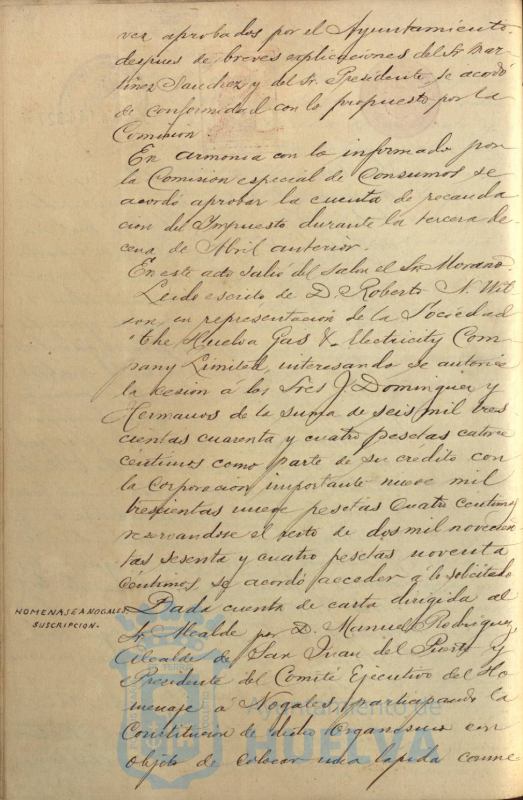 ver aprobados por el Ayuntamiento,
despues de breves esplicaciones del Sr Mar-
tinez Sanchez y del Sr. Presidente, se acordó
de conformidad con lo propuesto por la
Comision.
En armonia con lo informado por
la Comision especial de Consumos se
acordó aprobar la cuenta de recauda
cion del Impuesto durante la tercera de-
cena de Abril anterior.
En este acto salió del salon el Sr. Morano.
Leido escrito de D. Roberto N. Wil
son, en representacion de la Sociedad
"The Huelva Gas & Electricity Com-
pany Limited, interesando se autorice
la cesion á los Sres J. Dominguez y
Hermanos de la suma de seis mil tres
cientas cuarenta y cuatro pesetas catorce
centimos como parte de su credito con
la Corporacion importante nueve mil
trescientas nueve pesetas cuatro centimos
reservandose el resto de dos mil novecien
tas sesenta y cuatro pesetas noventa
céntimos, se acordó acceder á lo solicitado
HOMENAJE A NOGALES
SUSCRIPCION.
Dada cuenta de carta dirigida al
Sr. Alcalde por D. Manuel Rodriguez,
Alcalde de San Juan del Puerto y
Presidente del Comité Ejecutivo del Ho
menaje á Nogales, participando la
Constitucion de dicho Organismo con
objeto de colocar una lapida conme
Ayuntamiento de
HUELVA